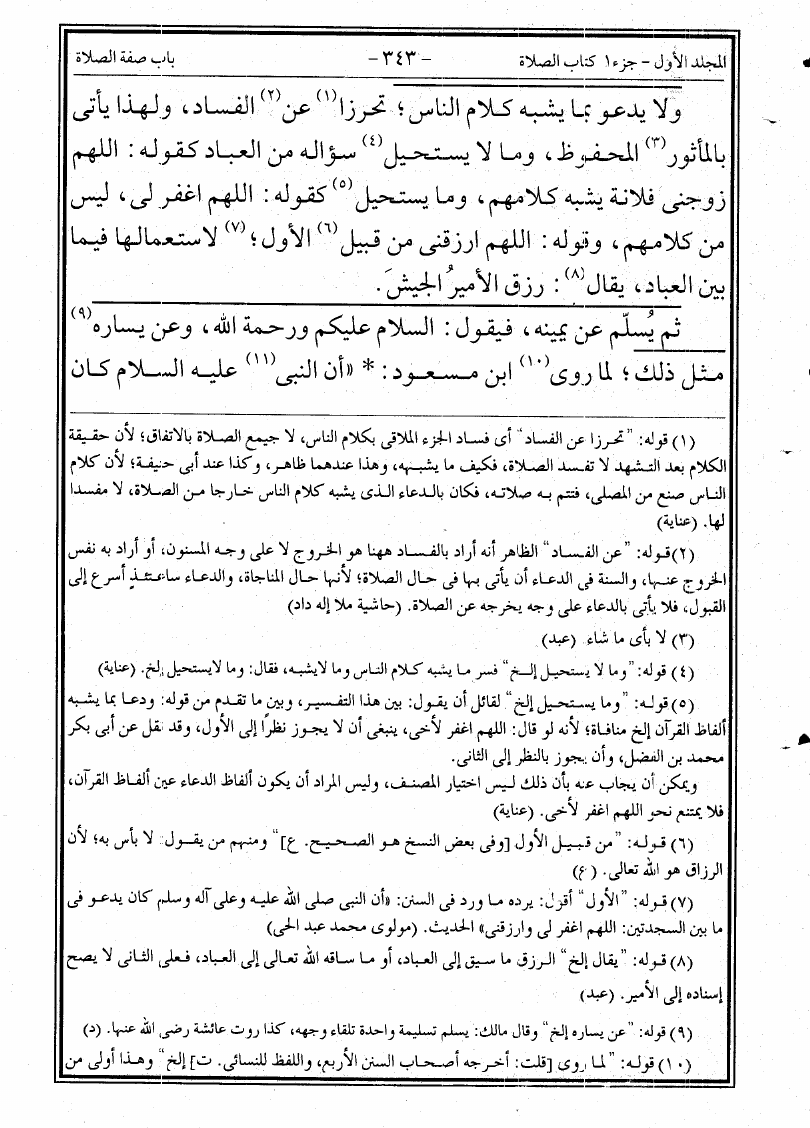 المجلد الأول – جزء ١ كتاب الصلاة – ٣٤٣ – باب صفة الصلاة
ولا يدعو بما يشبه كلام الناس؛ تحرزا(١) عن(٢) الفساد، ولهذا يأتى
بالمأثور(٣) المحفوظ، وما لا يستحيل(٤) سؤاله من العباد كقوله: اللهم
زوجنى فلانة يشبه كلامهم، وما يستحيل(٥) كقوله: اللهم اغفر لى، ليس
من كلامهم، وقوله: اللهم ارزقنى من قبيل(٦) الأول؛(٧) لاستعمالها فيما
بين العباد، يقال(٨): رزق الأميرُ الجيشَ.
ثم يُسلّم عن يمينه، فيقول: السلام عليكم ورحمة الله، وعن يساره(٩)
مثل ذلك؛ لما روى(١٠) ابن مسعود: * «أن النبى(١١) عليه السلام كان
(١) قوله: "تحرزا عن الفساد" أى فساد الجزء الملاقى بكلام الناس، لا جيمع الصلاة بالاتفاق؛ لأن حقيقة
الكلام بعد التشهد لا تفسد الصلاة، فكيف ما يشبهه، وهذا عندهما ظاهر، وكذا عند أبى حنيفة؛ لأن كلام
الناس صنع من المصلى، فتتم به صلاته، فكان بالدعاء الذى يشبه كلام الناس خارجا من الصلاة، لا مفسدا
لها. (عناية)
(٢) قوله: "عن الفساد" الظاهر أنه أراد بالفساد ههنا هو الخروج لا على وجه المسنون، أو أراد به نفس
الخروج عنها، والسنة فى الدعاء أن يأتى بها فى حال الصلاة؛ لأنها حال المناجاة، والدعاء ساعتئذٍ أسرع إلى
القبول، فلا يأتى بالدعاء على وجه يخرجه عن الصلاة. (حاشية ملا إله داد)
(٣) لا بأى ما شاء. (عبد)
(٤) قوله: "وما لا يستحيل إلخ" فسر ما يشبه كلام الناس وما لايشبه، فقال: وما لايستحيل إلخ. (عناية)
(٥) قوله: "وما يستحيل إلخ" لقائل أن يقول: بين هذا التفسير، وبين ما تقدم من قوله: ودعا بما يشبه
ألفاظ القرآن إلخ منافاة؛ لأنه لو قال: اللهم اغفر لأخى، ينبغى أن لا يجوز نظرًا إلى الأول، وقد نقل عن أبى بكر
محمد بن الفضل، وأن يجوز بالنظر إلى الثانى.
ويمكن أن يجاب عنه بأن ذلك ليس اختيار المصنف، وليس المراد أن يكون ألفاظ الدعاء عين ألفاظ القرآن،
فلا يمتنع نحو اللهم اغفر لأخى. (عناية)
(٦) قوله: "من قبيل الأول [وفى بعض النسخ هو الصحيح. ع]" ومنهم من يقول: لا بأس به؛ لأن
الرزاق هو الله تعالى. (ع)
(٧) قوله: "الأول" أقول: يرده ما ورد فى السنن: «أن النبى صلى الله عليه وعلى آله وسلم كان يدعو فى
ما بين السجدتين: اللهم اغفر لى وارزقنى» الحديث. (مولوى محمد عبد الحى)
(٨) قوله: "يقال إلخ" الرزق ما سيق إلى العباد، أو ما ساقه الله تعالى إلى العباد، فعلى الثانى لا يصح
إسناده إلى الأمير. (عبد)
(٩) قوله: "عن يساره إلخ" وقال مالك: يسلم تسليمة واحدة تلقاء وجهه، كذا روت عائشة رضى الله عنها. (د)
(١٠) قوله: "لما روى [قلت: أخرجه أصحاب السنن الأربع، واللفظ للنسائى. ت] إلخ" وهذا أولى من